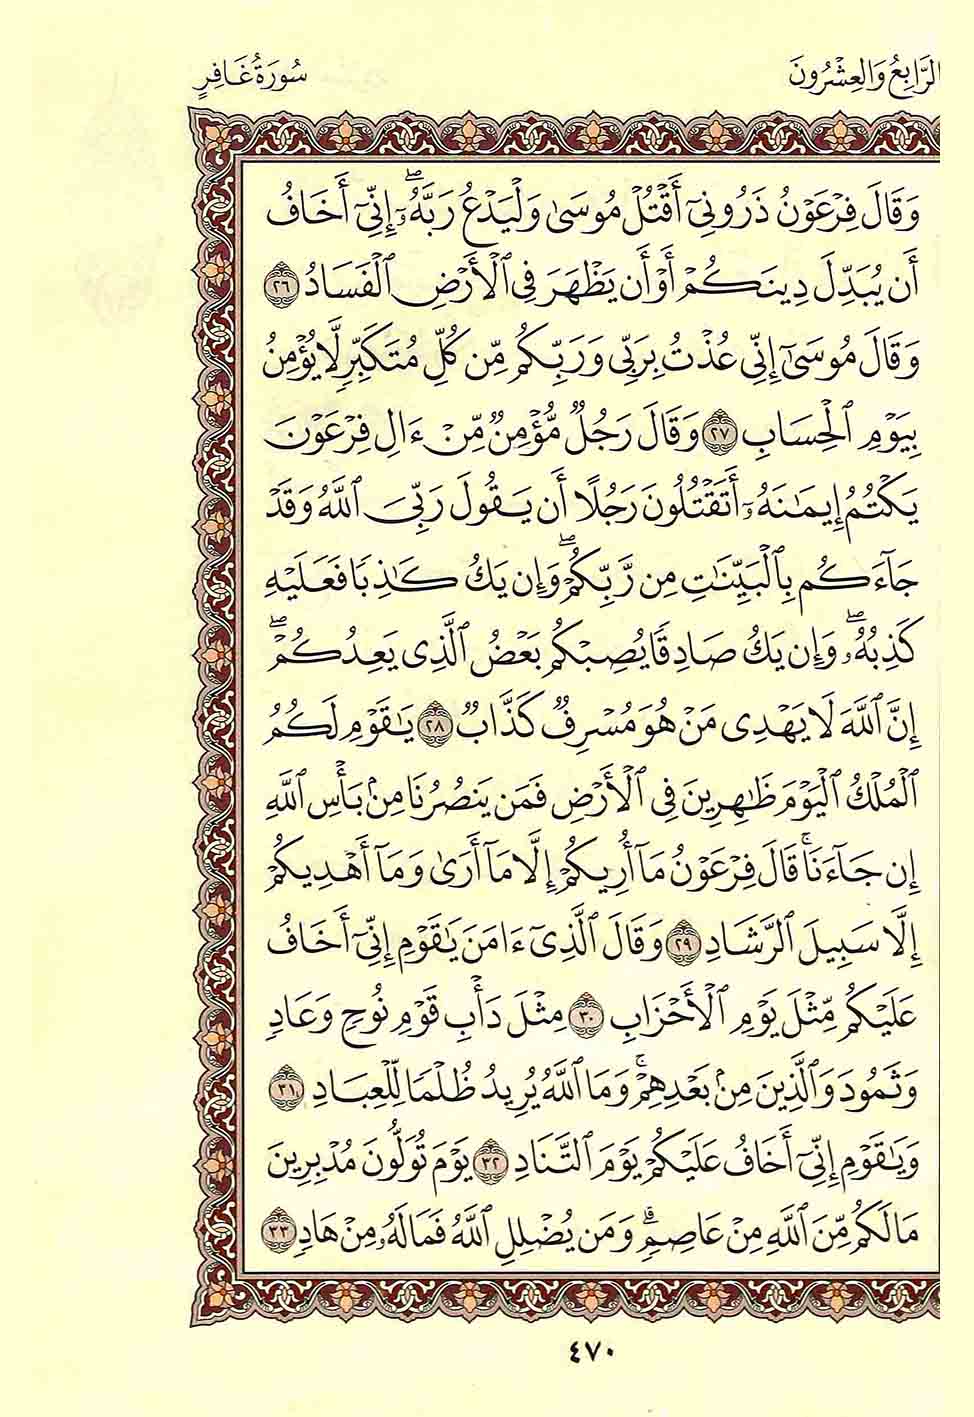 الرَّابِعُ وَالعِشْرُونَ
سُورَةُ غَافِرٍ
وَقَالَ فِرْعَوْنُ ذَرُونِىٓ أَقْتُلْ مُوسَىٰ وَلْيَدْعُ رَبَّهُۥٓۖ إِنِّىٓ أَخَافُ
أَن يُبَدِّلَ دِينَكُمْ أَوْ أَن يُظْهِرَ فِى ٱلْأَرْضِ ٱلْفَسَادَ ٢٦
وَقَالَ مُوسَىٰٓ إِنِّى عُذْتُ بِرَبِّى وَرَبِّكُم مِّن كُلِّ مُتَكَبِّرٍ لَّا يُؤْمِنُ
بِيَوْمِ ٱلْحِسَابِ ٢٧ وَقَالَ رَجُلٌ مُّؤْمِنٌ مِّنْ ءَالِ فِرْعَوْنَ
يَكْتُمُ إِيمَٰنَهُۥٓ أَتَقْتُلُونَ رَجُلًا أَن يَقُولَ رَبِّىَ ٱللَّهُ وَقَدْ
جَآءَكُم بِٱلْبَيِّنَٰتِ مِن رَّبِّكُمْۖ وَإِن يَكُ كَٰذِبًا فَعَلَيْهِ
كَذِبُهُۥۖ وَإِن يَكُ صَادِقًا يُصِبْكُم بَعْضُ ٱلَّذِى يَعِدُكُمْۖ
إِنَّ ٱللَّهَ لَا يَهْدِى مَنْ هُوَ مُسْرِفٌ كَذَّابٌ ٢٨ يَٰقَوْمِ لَكُمُ
ٱلْمُلْكُ ٱلْيَوْمَ ظَٰهِرِينَ فِى ٱلْأَرْضِ فَمَن يَنصُرُنَا مِنۢ بَأْسِ ٱللَّهِ
إِن جَآءَنَاۚ قَالَ فِرْعَوْنُ مَآ أُرِيكُمْ إِلَّا مَآ أَرَىٰ وَمَآ أَهْدِيكُمْ
إِلَّا سَبِيلَ ٱلرَّشَادِ ٢٩ وَقَالَ ٱلَّذِىٓ ءَامَنَ يَٰقَوْمِ إِنِّىٓ أَخَافُ
عَلَيْكُم مِّثْلَ يَوْمِ ٱلْأَحْزَابِ ٣٠ مِثْلَ دَأْبِ قَوْمِ نُوحٍ وَعَادٍ
وَثَمُودَ وَٱلَّذِينَ مِنۢ بَعْدِهِمْۚ وَمَا ٱللَّهُ يُرِيدُ ظُلْمًا لِّلْعِبَادِ ٣١
وَيَٰقَوْمِ إِنِّىٓ أَخَافُ عَلَيْكُمْ يَوْمَ ٱلتَّنَادِ ٣٢ يَوْمَ تُوَلُّونَ مُدْبِرِينَ
مَا لَكُم مِّنَ ٱللَّهِ مِنْ عَاصِمٍۗ وَمَن يُضْلِلِ ٱللَّهُ فَمَا لَهُۥ مِنْ هَادٍ ٣٣
٤٧٠